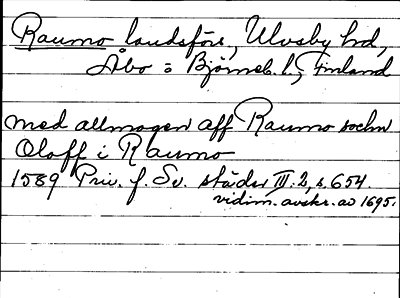 Raumo landsförs., Ulvsby hd,
Åbo o Björneb. l., Finland
med allmogen aff Raumo sochn
Oloff i Raumo
1589 Priv. f. Sv. städer III. 2, s. 654.
vidim. avskr. av 1695.